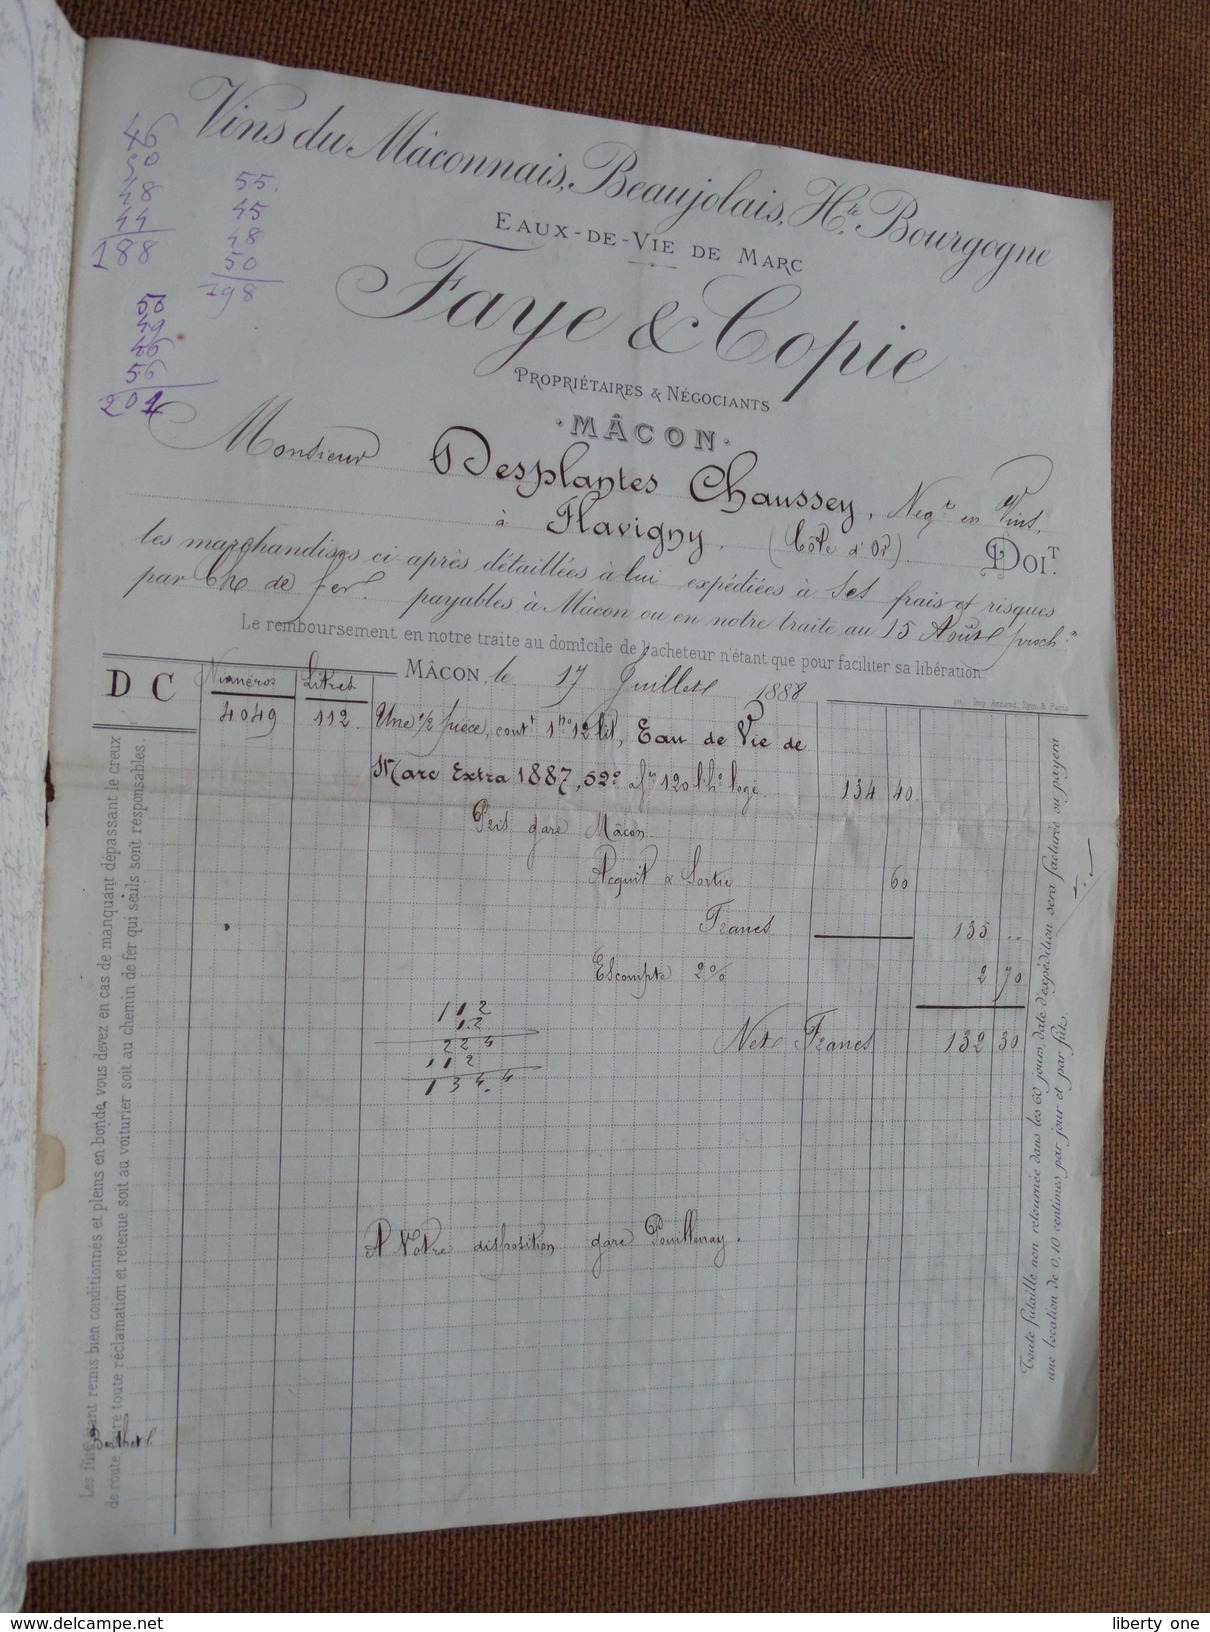 Vins du Mâconnais, Beaujolais, Hte Bourgogne
EAUX-DE-VIE DE MARC
Faye & Copie
PROPRIÉTAIRES & NÉGOCIANTS
MÂCON
46
50
48
44
188
55.
45
48
50
198
58
49
46
56
201
Monsieur Desplantes Chaussey, Negt en Vins,
à Flavigny. (Côte d'Or). DOIT.
les marchandises ci-après détaillées à lui expédiées à ses frais et risques
par Ch de fer. payables à Mâcon ou en notre traite au 15 Août proch.n
Le remboursement en notre traite au domicile de l'acheteur n'étant que pour faciliter sa libération.
D C Numéros Litres MÂCON, le 17 Juillet 1888
4049 112. Une 1/2 pièce, cont 112 lit, Eau de Vie de
Marc Extra 1887, 52° 120 l'ho logé. 134 40
Pris gare Mâcon.
Acquit & Sortie 60
Francs 135 ..
Escompte 2% 2 70
Net Francs 132 30
112
1.2
224
112
134.4
A Votre disposition gare Pouillenay.
Les fûts étant remis bien conditionnés et pleins en bonde, vous devez en cas de manquant dépassant le creux
de route, faire toute réclamation et retenue soit au voiturier soit au chemin de fer qui seuls sont responsables.
Toute futaille non retournée dans les 60 jours, date d'expédition sera facturée ou payera
une location de 0,10 centimes par jour et par fûts.
liberty one